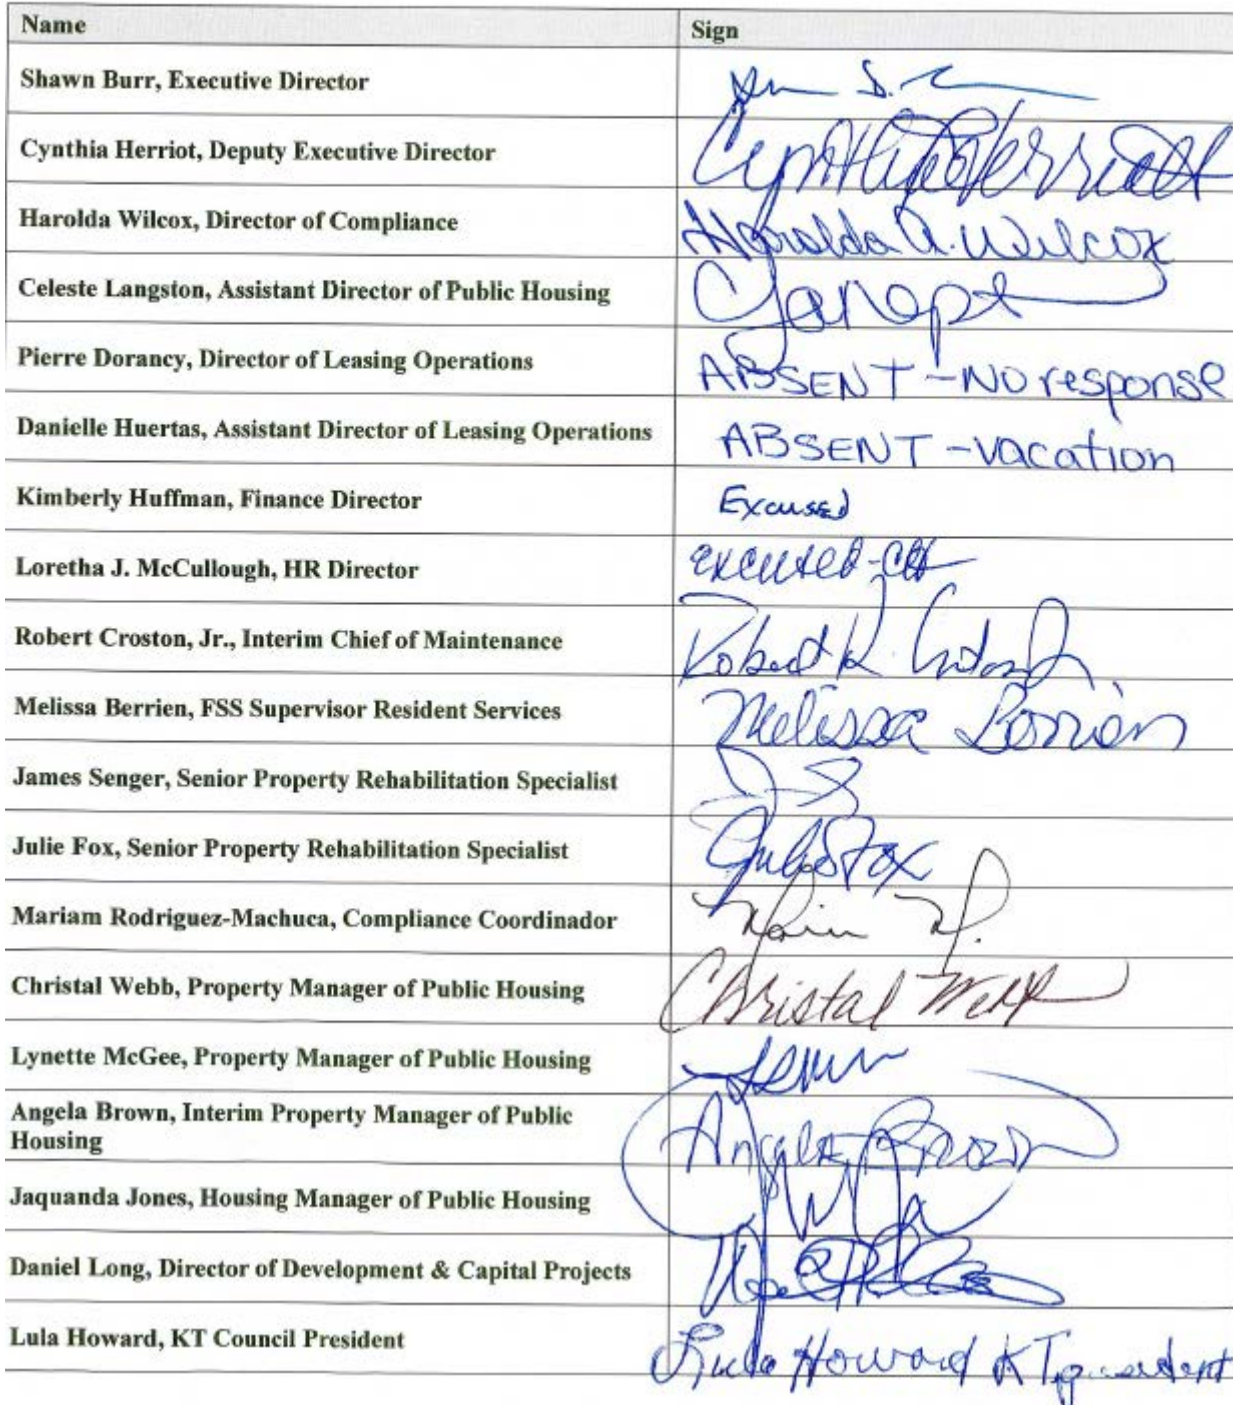 Name Sign
Shawn Burr, Executive Director
Cynthia Herriot, Deputy Executive Director Cynthia Herriott
Harolda Wilcox, Director of Compliance Harolda A. Wilcox
Celeste Langston, Assistant Director of Public Housing
Pierre Dorancy, Director of Leasing Operations ABSENT - NO response
Danielle Huertas, Assistant Director of Leasing Operations ABSENT - vacation
Kimberly Huffman, Finance Director Excused
Loretha J. McCullough, HR Director excused-
Robert Croston, Jr., Interim Chief of Maintenance Robert
Melissa Berrien, FSS Supervisor Resident Services Melissa Berrien
James Senger, Senior Property Rehabilitation Specialist
Julie Fox, Senior Property Rehabilitation Specialist Julie Fox
Mariam Rodriguez-Machuca, Compliance Coordinador
Christal Webb, Property Manager of Public Housing Christal Webb
Lynette McGee, Property Manager of Public Housing
Angela Brown, Interim Property Manager of Public
Housing Angela Brown
Jaquanda Jones, Housing Manager of Public Housing
Daniel Long, Director of Development & Capital Projects
Lula Howard, KT Council President Lula Howard KT president